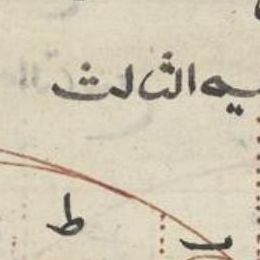 الثالث
ط
ب